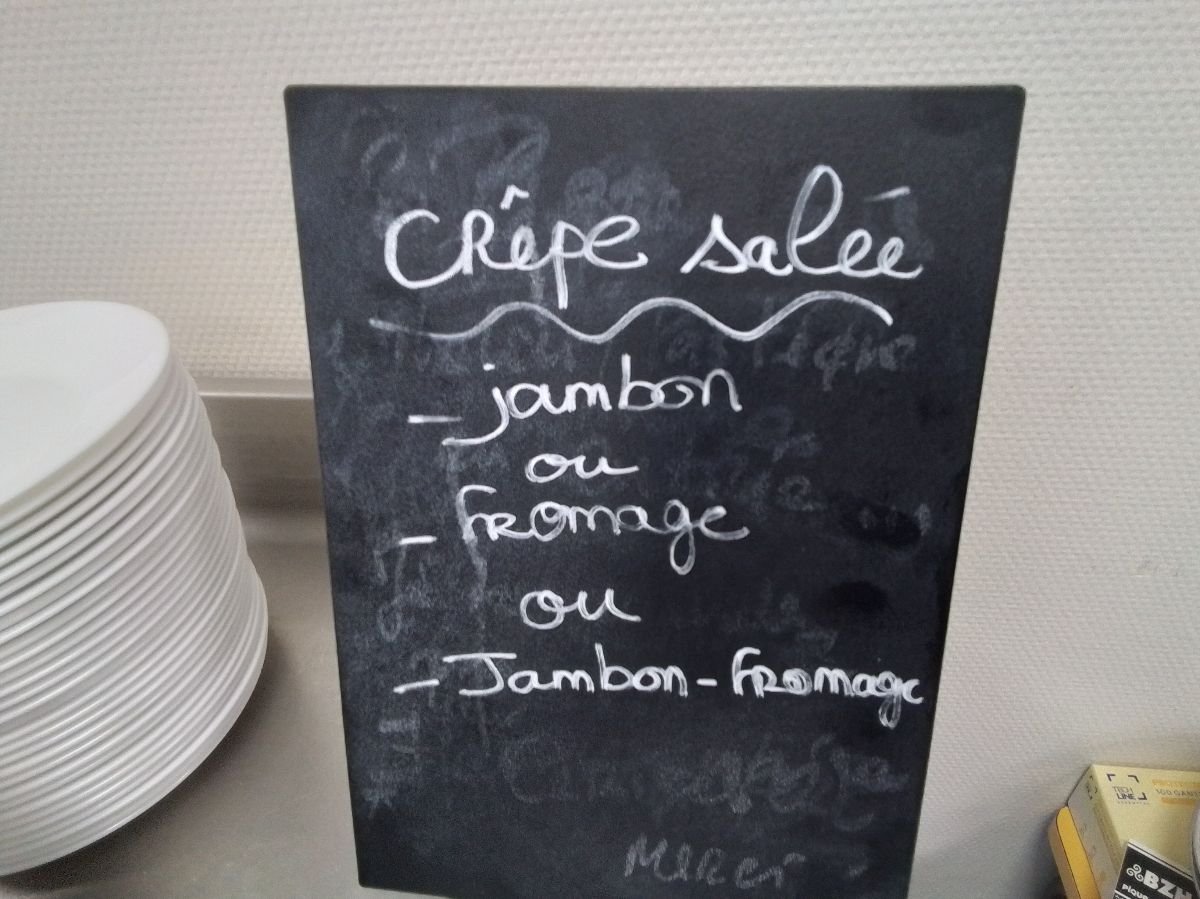 Crêpe salée
- jambon
ou
- fromage
ou
- Jambon - fromage
Merci
TECH
LINE
100 GANTS
BZH